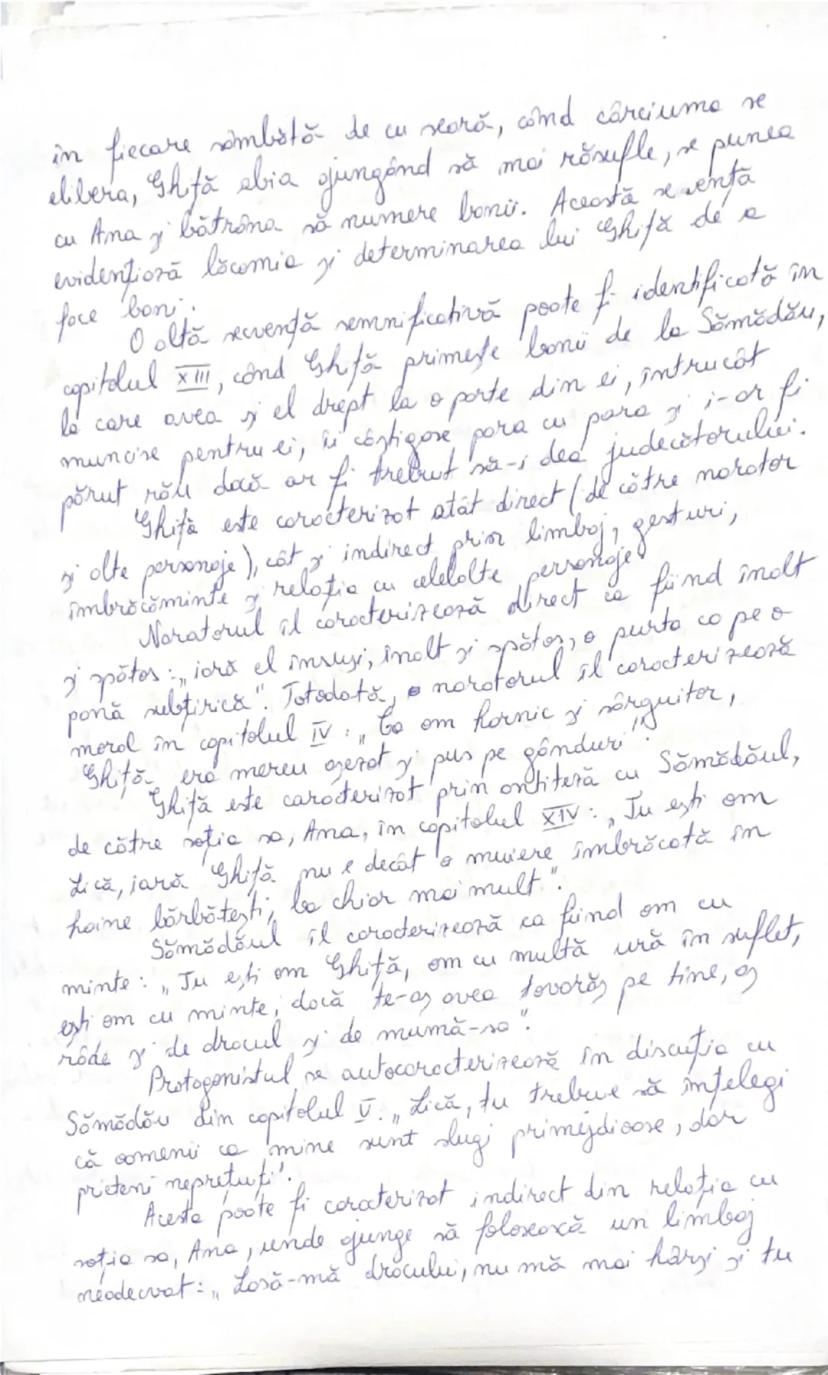 în fiecare sâmbătă de cu seară, când cârciuma se
elibera, Ghiță abia ajungând să mai răsufle, se punea
cu Ana și bătrâna să numere banii. Această secvență
evidențiază lăcomia și determinarea lui Ghiță de a
face bani.
O altă secvență semnificativă poate fi identificată în
capitolul XIII, când Ghiță primește banii de la Sămădău,
la care avea și el drept la o parte din ei, întrucât
muncise pentru ei, îi câștigase para cu para și i-ar fi
părut rău dacă ar fi trebuit să-i dea judecătorului.
Ghiță este caracterizat atât direct (de către narator
și alte personaje), cât și indirect prin limbaj, gesturi,
îmbrăcăminte și relația cu celelalte personaje.
Naratorul îl caracterizează direct ca fiind înalt
și spătos: „iară el însuși, înalt și spătos, o purta ca pe o
pană subțirică". Totodată, naratorul îl caracterizează
moral în capitolul IV: „Ca om harnic și sârguitor,
Ghiță era mereu așezat și pus pe gânduri".
Ghiță este caracterizat prin antiteză cu Sămădăul,
de către soția sa, Ana, în capitolul XIV: „Tu ești om
Lică, iară Ghiță nu e decât o muiere îmbrăcată în
haine bărbătești, ba chiar mai mult".
Sămădăul îl caracterizează ca fiind om cu
minte: „Tu ești om Ghiță, om cu multă ură în suflet,
ești om cu minte, dacă te-aș avea tovarăș pe tine, aș
râde și de dracul și de mumă-sa".
Protagonistul se autocaracterizează în discuția cu
Sămădău din capitolul V: „Lică, tu trebuie să înțelegi
că oamenii ca mine sunt slugi primejdioase, dar
prieteni neprețuiți".
Acesta poate fi caracterizat indirect din relația cu
soția sa, Ana, unde ajunge să folosească un limbaj
neadecvat: „Lasă-mă dracului, nu mă mai hârși și tu